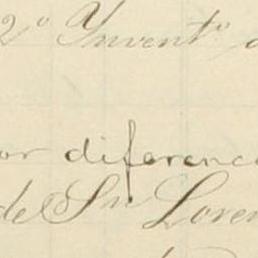 2º Inventº
or diferenc
de Sn Loren